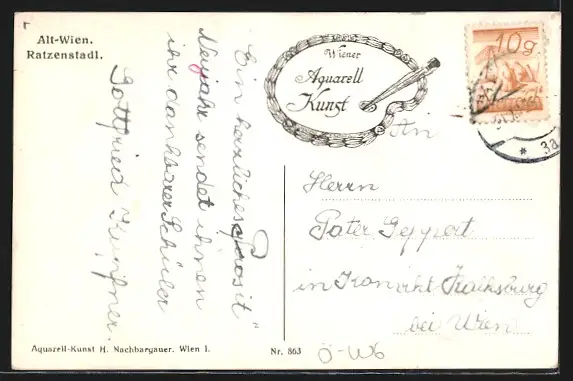 Alt-Wien.
Ratzenstadl.
Wiener
Aquarell
Kunst
10g
Ein herzliches Prosit
Neujahr sendet ihnen
ihr dankbarer Schüler
Gottfried
An
Herrn
Pater Geppert
in Konvikt Kalksburg
bei Wien
Aquarell-Kunst H. Nachbargauer. Wien I.
Nr. 863
Ö-W6